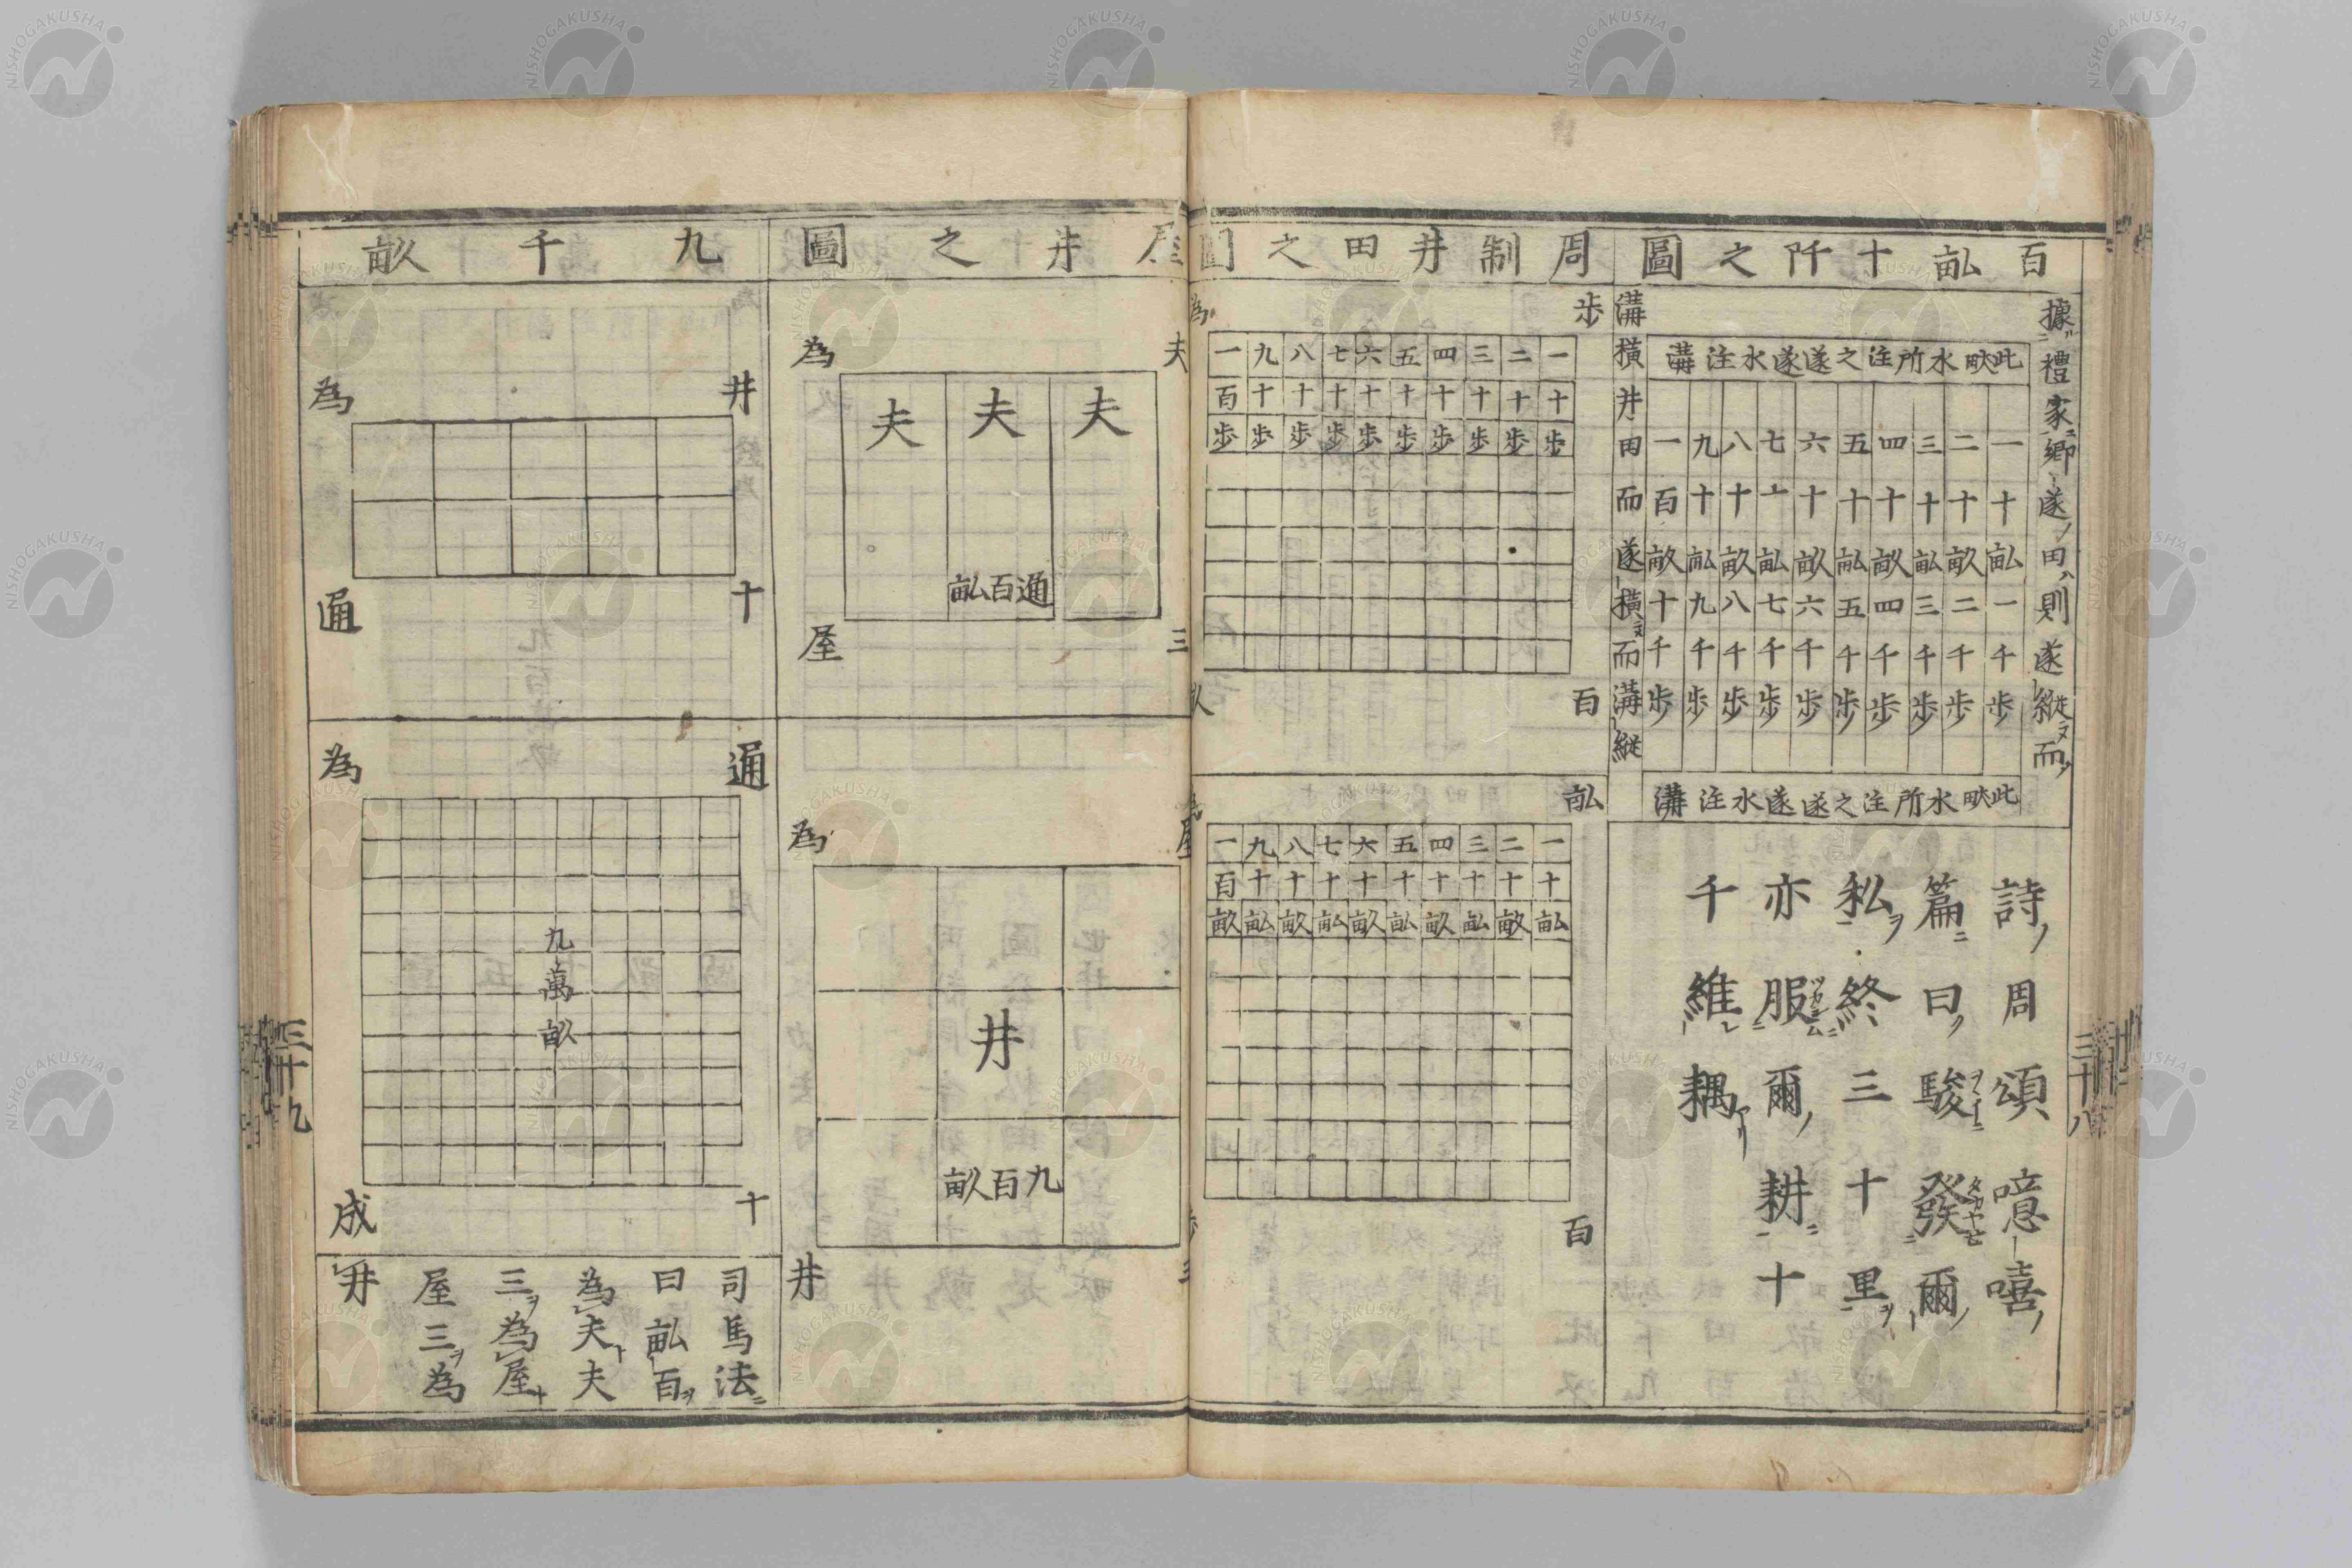 百畆十阡之圖
據禮家鄉遂田則遂縱而
此畎水所注之遂遂水注溝
一十畆一千步
二十畝二千步
三十畆三千步
四十畝四千步
五十畆五千步
六十畝六千步
七十畆七千步
八十畝八千步
九十畆九千步
一百畝十千步
此畎水所注之遂遂水注溝
溝橫井田而遂橫而溝縱
詩周頌噫嘻
篇曰駿發爾
私終三十里
亦服爾耕十
千維耦
三十八
周制井田之圖
步百為
一十步
二十步
三十步
四十步
五十步
六十步
七十步
八十步
九十步
一百步
畆百為
一十畆
二十畝
三十畆
四十畝
五十畆
六十畝
七十畆
八十畝
九十畆
一百畝
屋井之圖
夫三為屋
夫夫夫
通百畆
屋三為井
井
九百畝
九千畝
井十為通
通十為成
九萬畝
司馬法
曰畆百
為夫夫
三為屋
屋三為
井
三十九
NISHOGAKUSHA